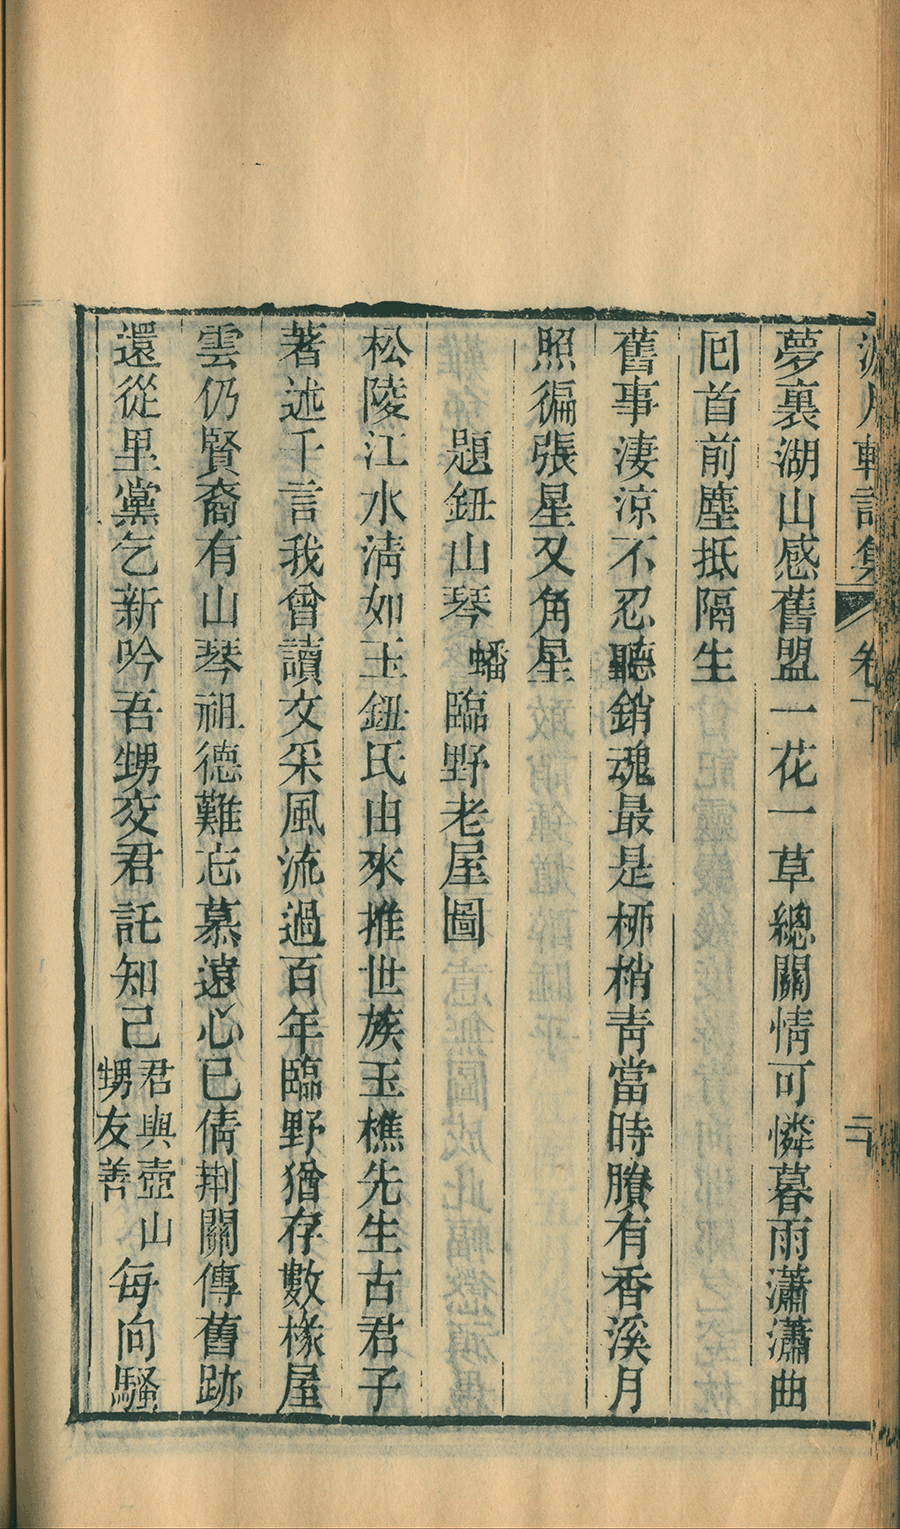 月軒詩集 卷下 二
夢裏湖山感舊盟一花一草總關情可憐暮雨瀟瀟曲
囘首前塵抵隔生
舊事淒涼不忍聽銷魂最是桞梢青當時賸有香溪月
照徧張星又角星
題鈕山琴蟠臨野老屋圖
松陵江水淸如玉鈕氏由來推世族玉樵先生古君子
著述千言我曾讀文采風流過百年臨野猶存數椽屋
雲仍賢裔有山琴祖德難忘慕遠心已倩荆關傳舊跡
還從里黨乞新吟吾甥交君託知己君與壺山甥友善每向騷